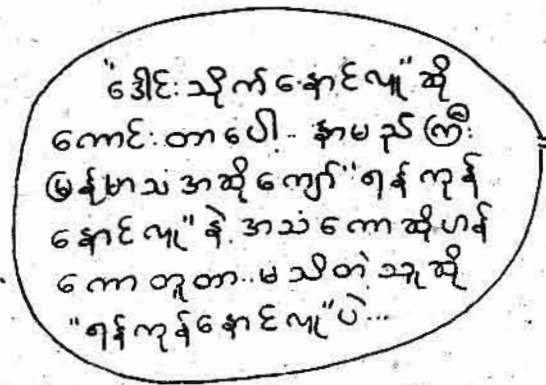 "ဒေါင်းသိုက်နောင်လူ"ဆို
ကောင်းတာပေါ့.. နာမည်ကြီး
မြန်မာသံအဆိုကျော်"ရန်ကုန်
နောင်လူ"နဲ့အသံကောဆိုဟန်
ကောတူတာ..မသိတဲ့သူဆို
"ရန်ကုန်နောင်လူ"ပဲ...